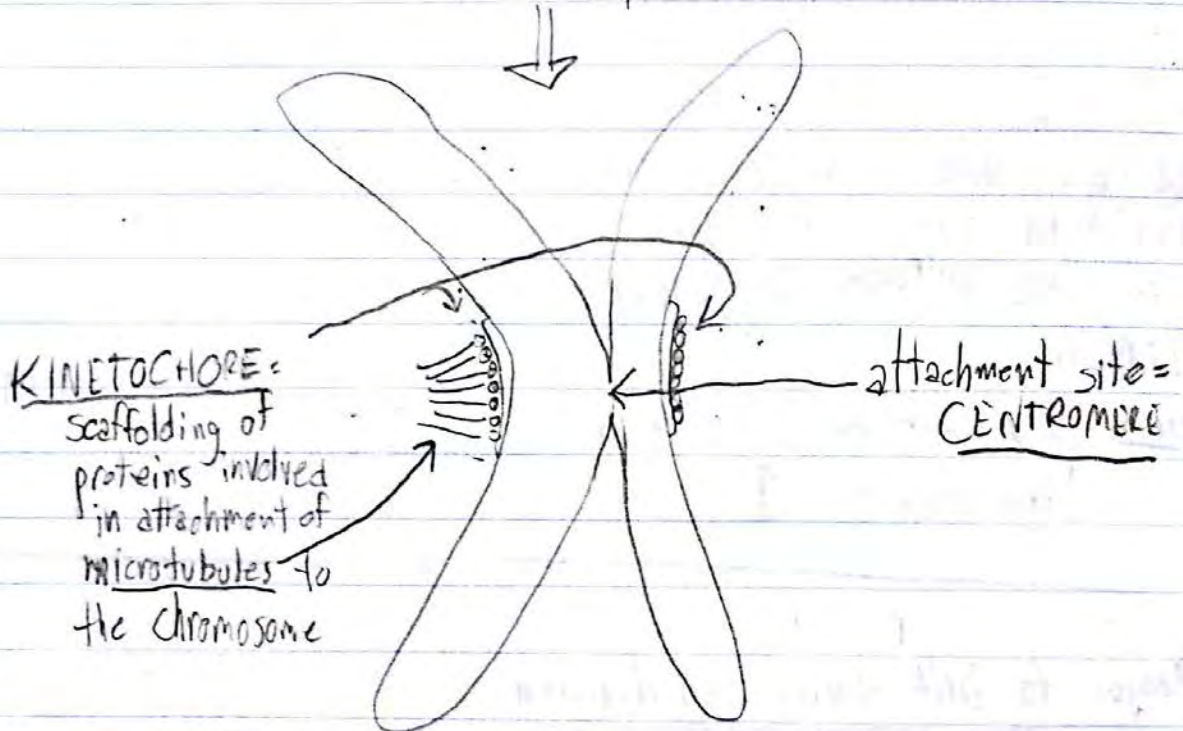 KINETOCHORE=
scaffolding of
proteins involved
in attachment of
microtubules to
the chromosome
attachment site=
CENTROMERE